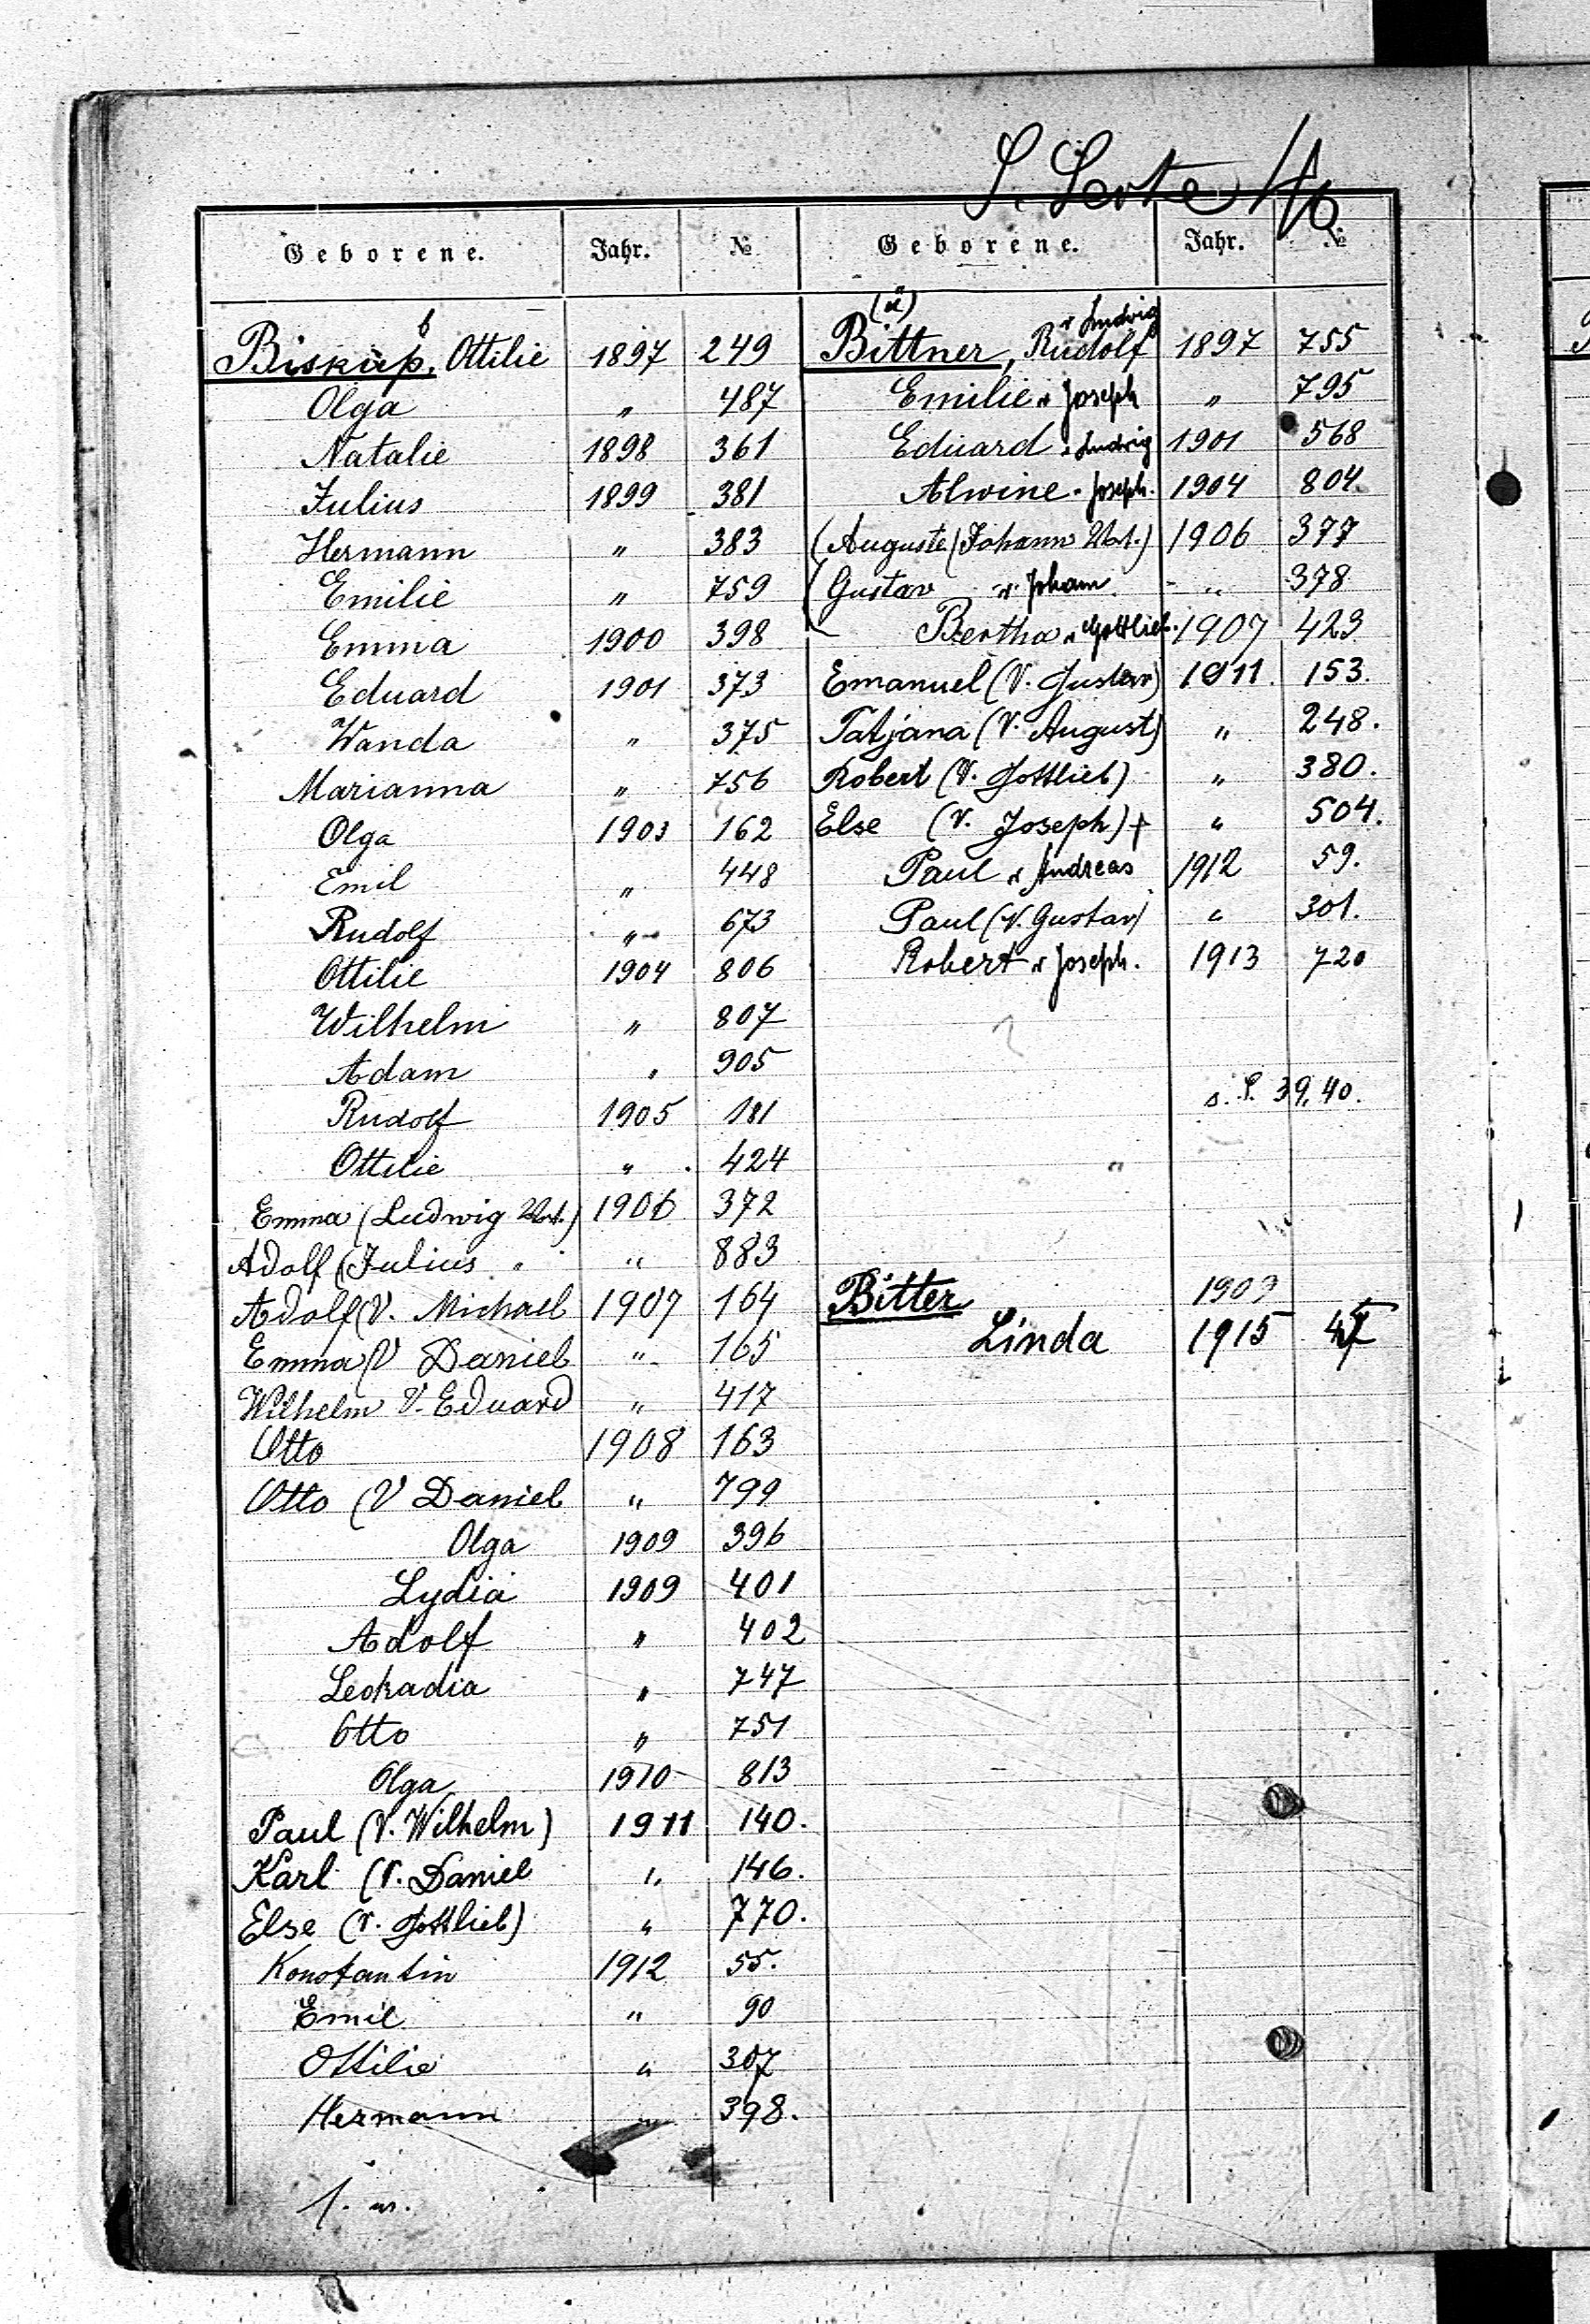 Geborene. Jahr. №
Biskup, Ottilie 1897 249
Olga " 487
Natalie 1898 361
Julius 1899 381
Hermann " 383
Emilie " 759
Emma 1900 398
Eduard 1901 373
Wanda " 375
Marianna " 756
Olga 1903 162
Emil " 448
Rudolf " 673
Ottilie 1904 806
Wilhelm " 807
Adam " 905
Rudolf 1905 181
Ottilie " 424
Emma (Ludwig Vat.) 1906 372
Adolf (Julius " " 883
Adolf (V. Michael 1907 164
Emma (V Daniel " 165
Wilhelm V. Eduard " 417
Otto 1908 163
Otto (V Daniel " 799
Olga 1909 396
Lydia 1909 401
Adolf " 402
Leokadia " 747
Otto " 751
Olga 1910 813
Paul (V. Wilhelm) 1911 140.
Karl (V. Daniel " 146.
Else (V. Gottlieb) " 770.
Konstantin 1912 55.
Emil " 90
Ottilie " 307
Hermann " 398.
Geborene. Jahr. №
(ü)
Bittner, Rudolf v Ludwig 1897 755
Emilie v Joseph " 795
Eduard v Ludwig 1901 568
Alwine v Joseph. 1904 804
(Auguste (Johann Vat.) 1906 377
(Gustav v. Johann. " 378
Bertha v Gottlieb. 1907 423
Emanuel (V. Gustav) 1911 153.
Tatjana (V. August) " 248.
Robert (V. Gottlieb) " 380.
Else (V. Joseph) + " 504.
Paul v Andreas 1912 59.
Paul (V. Gustav) " 301.
Robert v Joseph. 1913 720
s. S. 39, 40.
Bitter 1909
Linda 1915